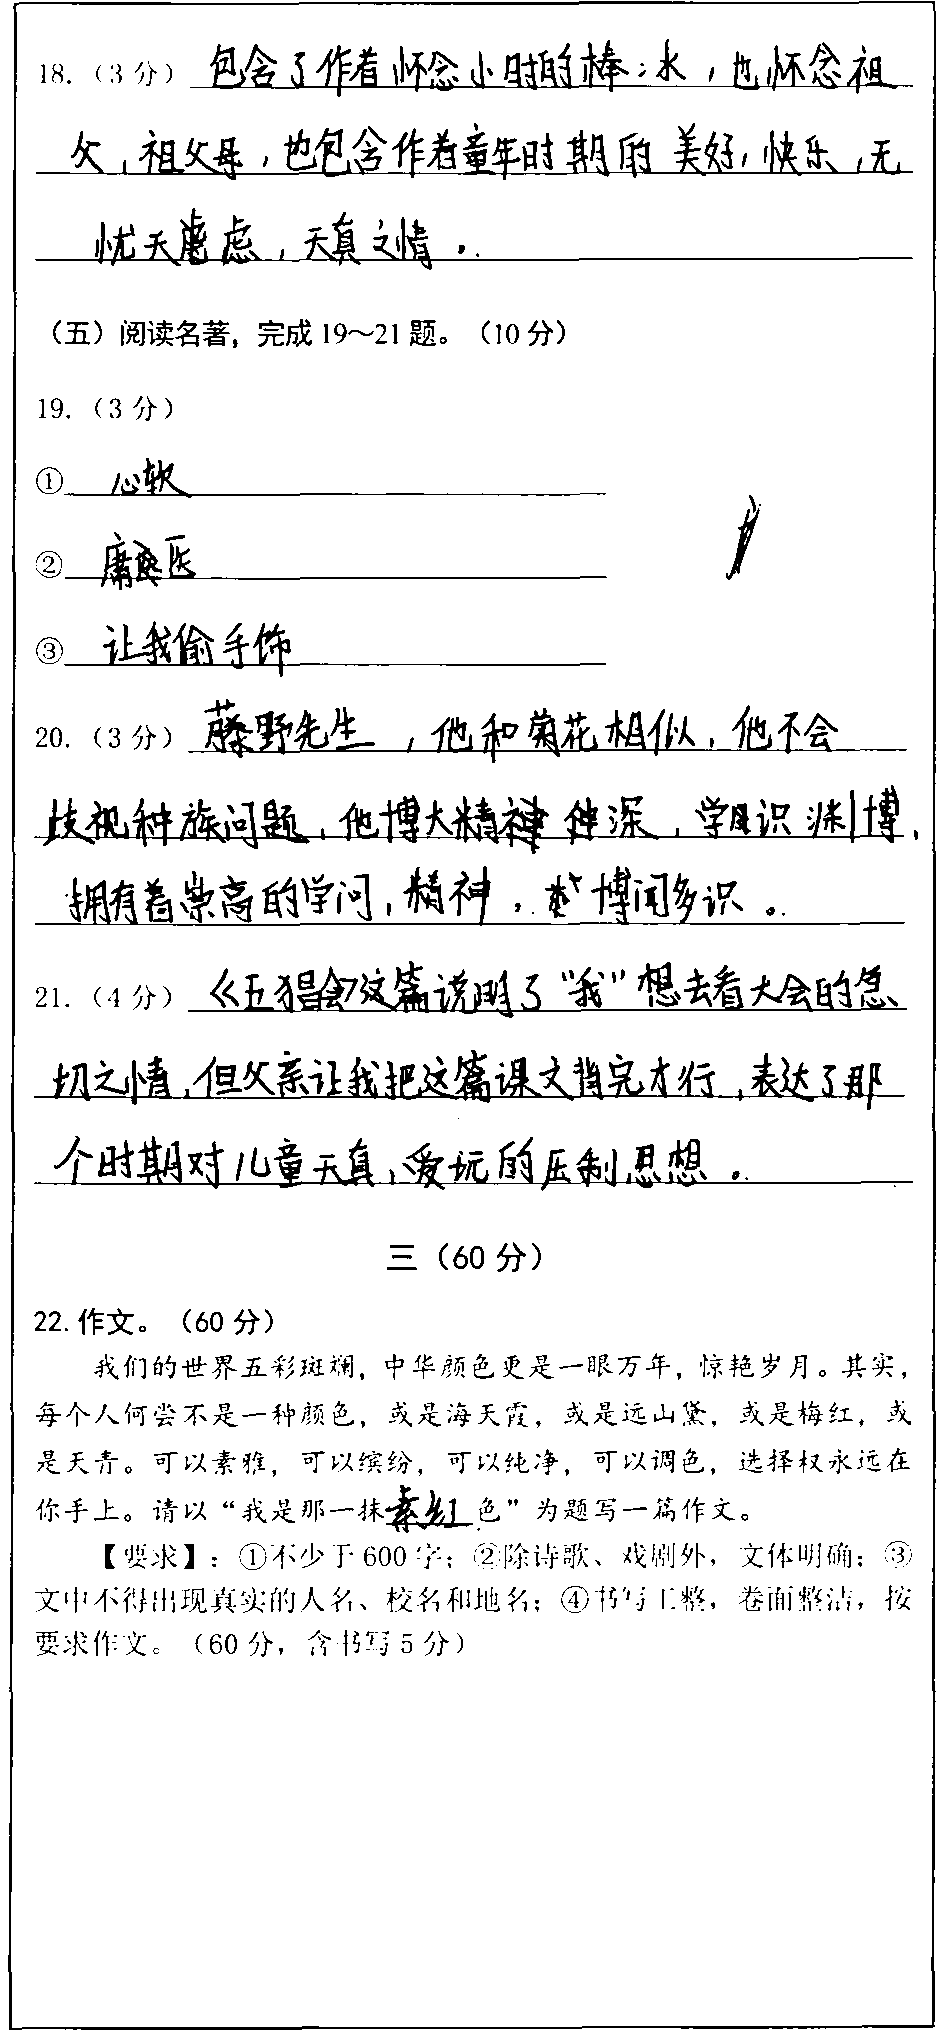 18.（3分）包含了作者怀念小时的棒冰，也怀念祖
父，祖父母，也包含作者童年时期的美好，快乐，无
忧无虑，天真之情。
（五）阅读名著，完成19～21题。（10分）
19.（3分）
① 心软
② 庸医
③ 让我偷手饰
20.（3分）藤野先生，他和菊花相似，他不会
歧视种族问题，他博大精神深，学识渊博，
拥有着崇高的学问，精神，博闻多识。
21.（4分）《五猖会》这篇说明了“我”想去看大会的急
切之情，但父亲让我把这篇课文背完才行，表达了那
个时期对儿童天真，爱玩的压制思想。
三（60分）
22.作文。（60分）
我们的世界五彩斑斓，中华颜色更是一眼万年，惊艳岁月。其实，
每个人何尝不是一种颜色，或是海天霞，或是远山黛，或是梅红，或
是天青。可以素雅，可以缤纷，可以纯净，可以调色，选择权永远在
你手上。请以“我是那一抹素红色”为题写一篇作文。
【要求】：①不少于600字；②除诗歌、戏剧外，文体明确；③
文中不得出现真实的人名、校名和地名；④书写工整，卷面整洁，按
要求作文。（60分，含书写5分）